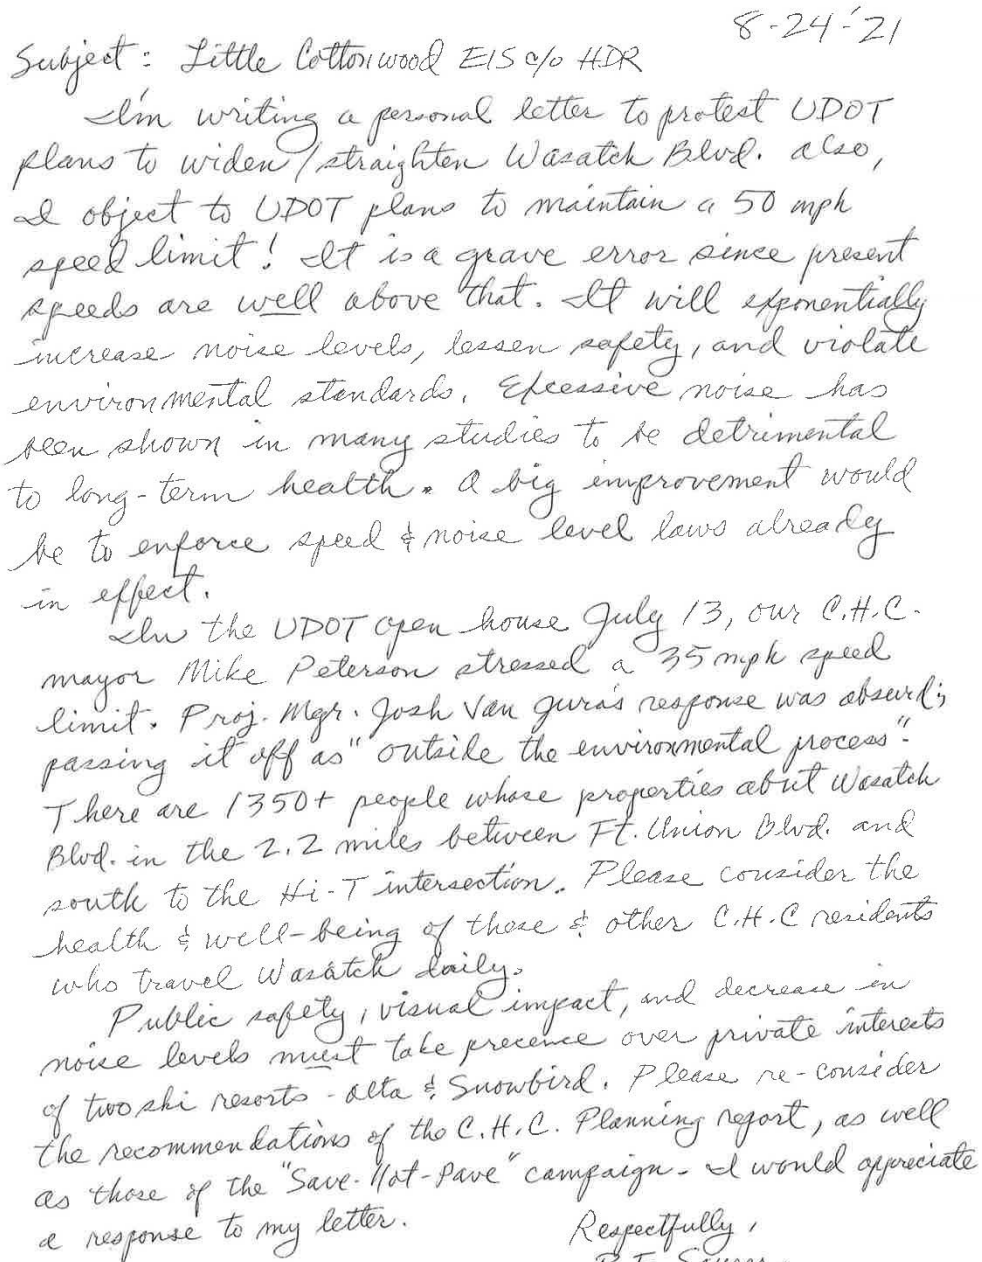 8-24-'21
Subject: Little Cottonwood EIS c/o HDR
I'm writing a personal letter to protest UDOT
plans to widen/straighten Wasatch Blvd. also,
I object to UDOT plans to maintain a 50 mph
speed limit! It is a grave error since present
speeds are well above that. It will exponentially
increase noise levels, lessen safety, and violate
environmental standards. Excessive noise has
been shown in many studies to be detrimental
to long-term health. A big improvement would
be to enforce speed & noise level laws already
in effect.
In the UDOT open house July 13, our C.H.C.
mayor Mike Peterson stressed a 35 mph speed
limit. Proj. Mgr. Josh Van Jura's response was absurd;
passing it off as "outside the environmental process".
There are 1350+ people whose properties abut Wasatch
Blvd. in the 2.2 miles between Ft. Union Blvd. and
south to the Hi-T intersection. Please consider the
health & well-being of those & other C.H.C residents
who travel Wasatch daily.
Public safety, visual impact, and decrease in
noise levels must take precence over private interests
of two ski resorts - Alta & Snowbird. Please re-consider
the recommendations of the C.H.C. Planning report, as well
as those of the "Save-Not-Pave" campaign. I would appreciate
a response to my letter.
Respectfully,